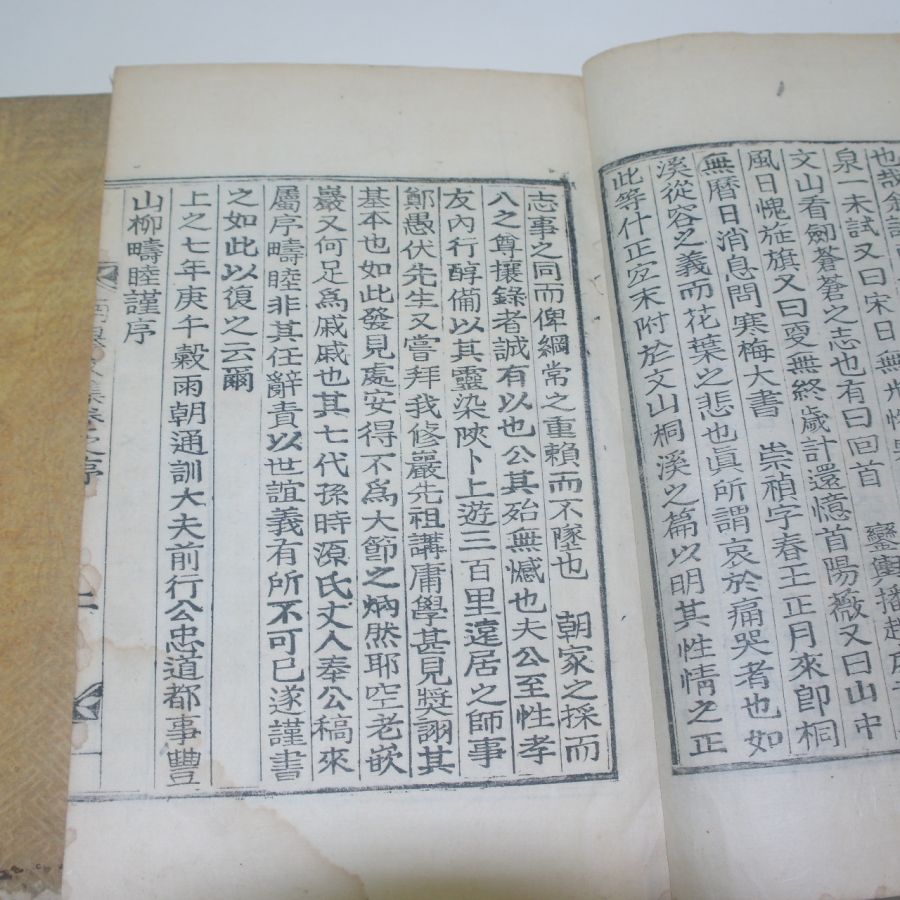 泉一未試又曰宋日無光性
文山看劍蒼蒼之志也有曰回首　鑾輿播越
風日愧旌旗又曰叟無終歲計還憶首陽薇又曰山中
無曆日消息問寒梅大書　崇禎字春王正月來卽桐
溪從容之義而花葉之悲也眞所謂哀於痛哭者也如
此等什正宜末附於文山桐溪之篇以明其性情之正
志事之同而俾綱常之重賴而不墜也　朝家之採而
八之尊攘錄者誠有以也公其殆無憾也夫公至性孝
友內行醇備以其靈染陜卜上遊三百里遠居之師事
鄭愚伏先生又嘗拜我修巖先祖講庸學甚見獎詡其
基本也如此發見處安得不爲大節之炳然耶空老嵌
巖又何足爲戚戚也其七代孫時源氏丈人奉公稿來
屬序疇睦非其任辭責以世誼義有所不可已遂謹書
之如此以復之云爾
上之七年庚午穀雨朝通訓大夫前行公忠道都事豐
山柳疇睦謹序